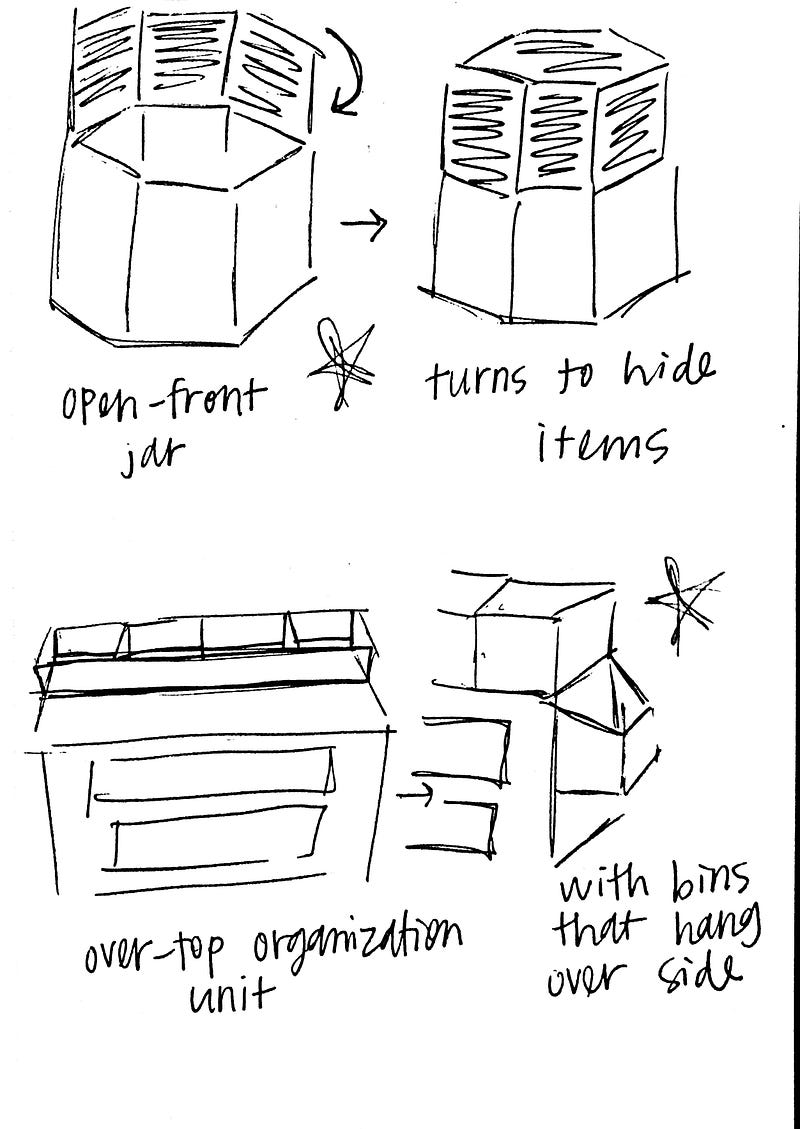 open-front
jar
turns to hide
items
over-top organization
unit
with bins
that hang
over side